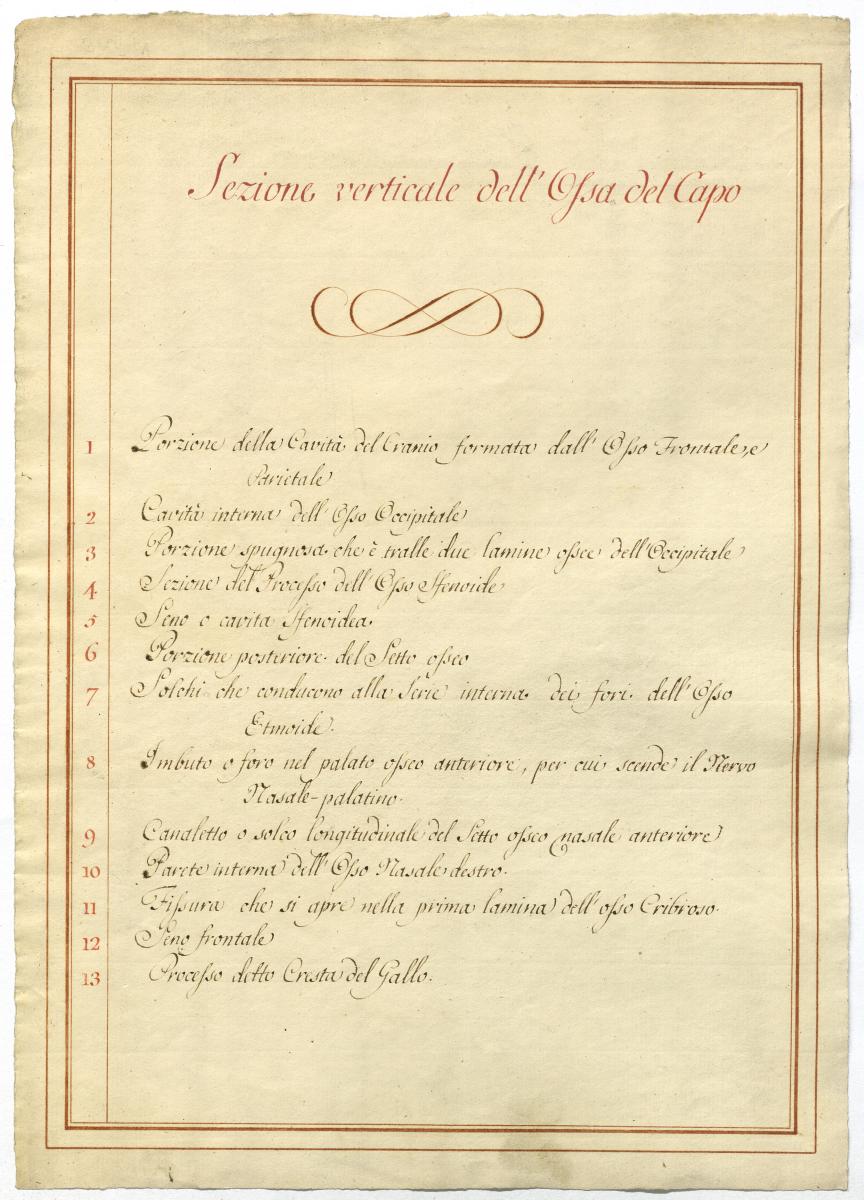 Sezione verticale dell' Ossa del Capo
1 Porzione della Cavità del Cranio formata dall' Osso Frontale, e
Parietale
2 Cavità interna dell' Osso Occipitale
3 Porzione spugnosa che è tralle due lamine ossee dell' Occipitale
4 Sezione del Processo dell' Osso Sfenoide
5 Seno o cavita Sfenoidea.
6 Porzione posteriore del Setto osseo
7 Solchi che conducono alla Serie interna dei fori dell' Osso
Etmoide.
8 Imbuto o foro nel palato osseo anteriore, per cui scende il Nervo
Nasale-palatino.
9 Canaletto o solco longitudinale del Setto osseo nasale anteriore
10 Parete interna dell' Osso Nasale destro.
11 Fissura che si apre nella prima lamina dell' osso Cribroso.
12 Seno frontale
13 Processo detto Cresta del Gallo.